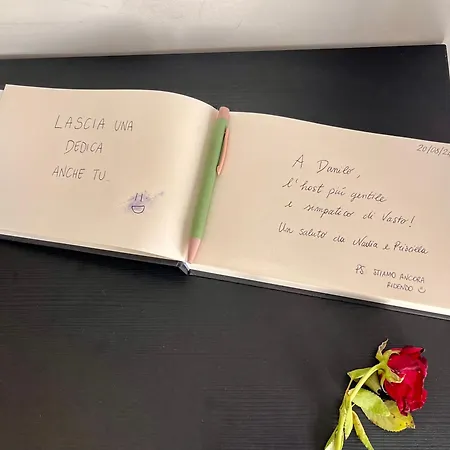 LASCIA UNA
DEDICA
ANCHE TU..
20/03/20
A Danilo,
l'host più gentile
e simpatico di Vasto!
Un saluto da Nadia e Priscilla
PS STIAMO ANCORA
RIDENDO